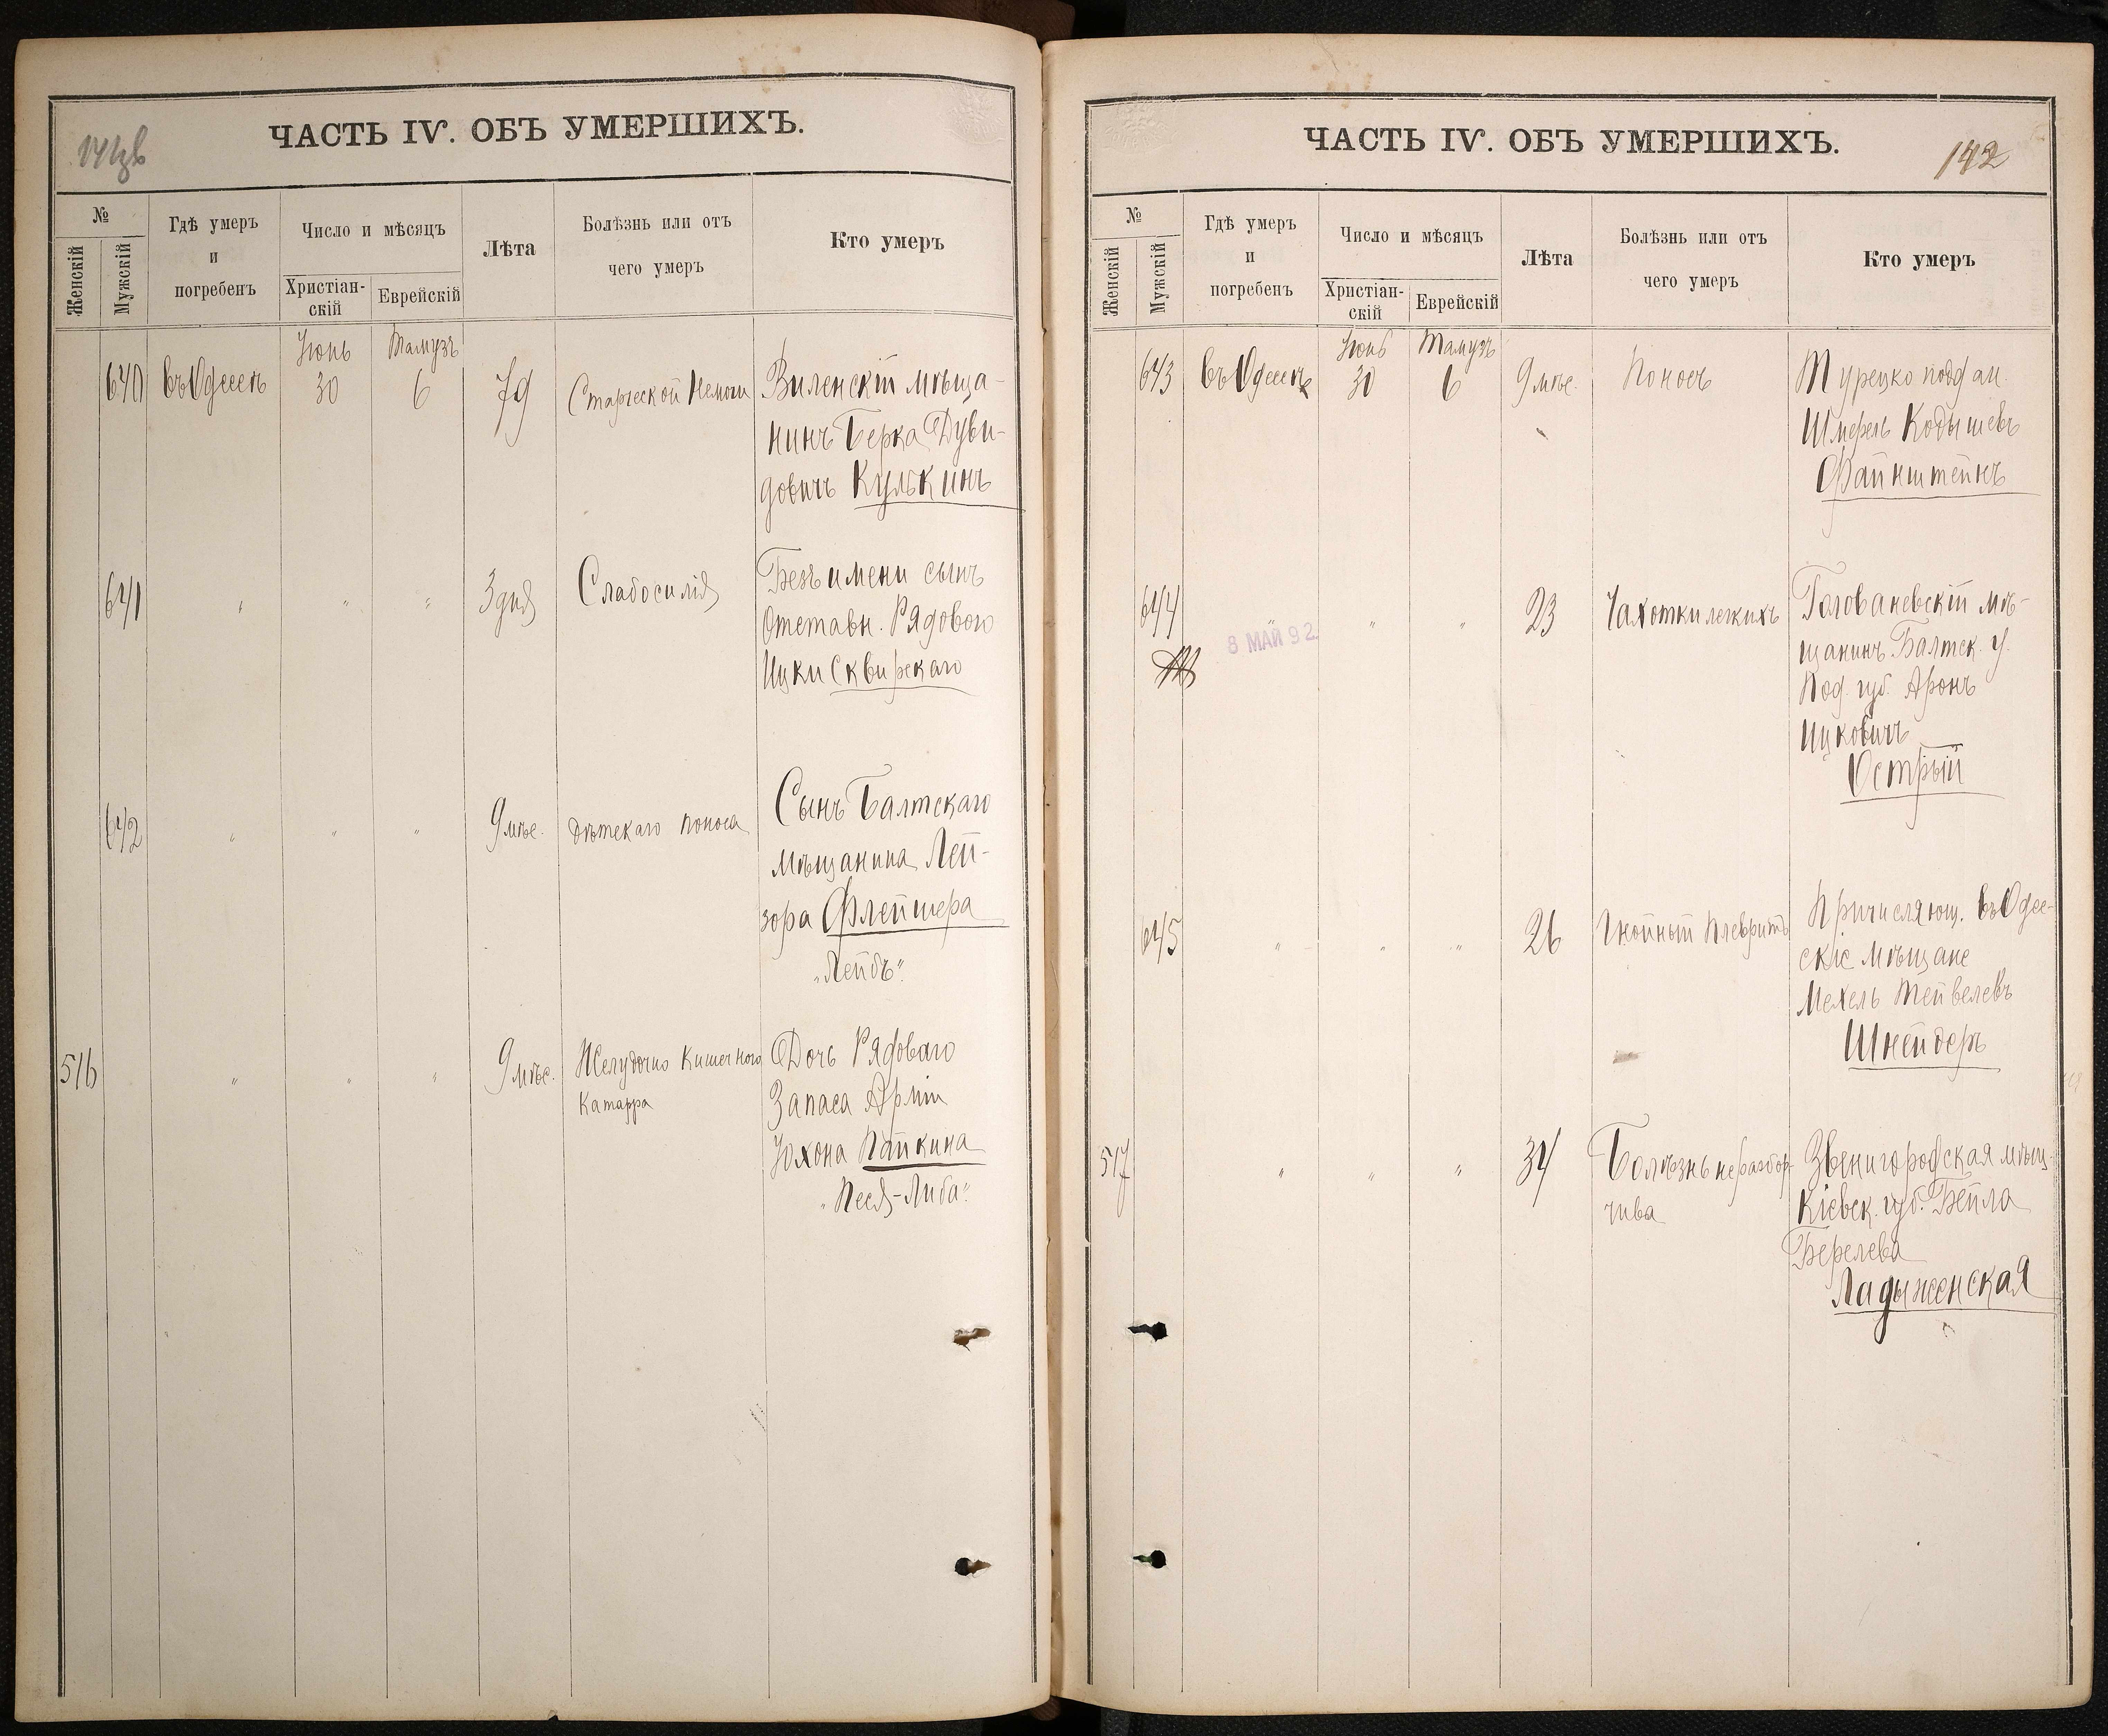 ЧАСТЬ IV. ОБЪ УМЕРШИХЪ.
№
Женскій
Мужскій
Гдѣ умеръ
и
погребенъ
Число и мѣсяцъ
Христіан-
скій
Еврейскій
Лѣта
Болѣзнь или отъ
чего умеръ
Кто умеръ
Іюнь Тамузъ
640 въ Одессѣ 30 6 79 Старческой Немощи Виленскій мѣща-
нинъ Берка Дуви-
довичъ Кулькинъ
641 " " " 3 дня Слабосилія Безъ имени сынъ
Отставн. Рядового
Ицки Сквирскаго
642 " " " 9 мѣс. Дѣтскаго поноса Сынъ Балтскаго
мѣщанина Лей-
зора Флейшера
"Лейбъ"
516 " " " 9 мѣс. Желудочно Кишечнаго Дочь Рядоваго
Катарра Запаса Арміи
Іохона Папкина
"Песя-Либа"
ЧАСТЬ IV. ОБЪ УМЕРШИХЪ.
142
№
Женскій
Мужскій
Гдѣ умеръ
и
погребенъ
Число и мѣсяцъ
Христіан-
скій
Еврейскій
Лѣта
Болѣзнь или отъ
чего умеръ
Кто умеръ
Іюнь Тамузъ
643 въ Одессѣ 30 6 9 мѣс. Поносъ Турецко поддан.
Шмерель Кодышевъ
Файнштейнъ
644 " " " 23 Чахотки легкихъ Головановскій мѣ-
8 МАЙ 92.
щанинъ Балтск. у.
Под. губ. Аронъ
Ицковичъ
Острый
645 " " " 26 Гнойный Плевритъ Причисляющ. въ Одес-
скіе мѣщане
Мехель Тейвелевъ
Шнейдеръ
517 " " " 34 Болѣзнь неразбор- Звенигородская мѣщ.
чива Кіевск. губ. Бейла
Берелева
Ладыженская